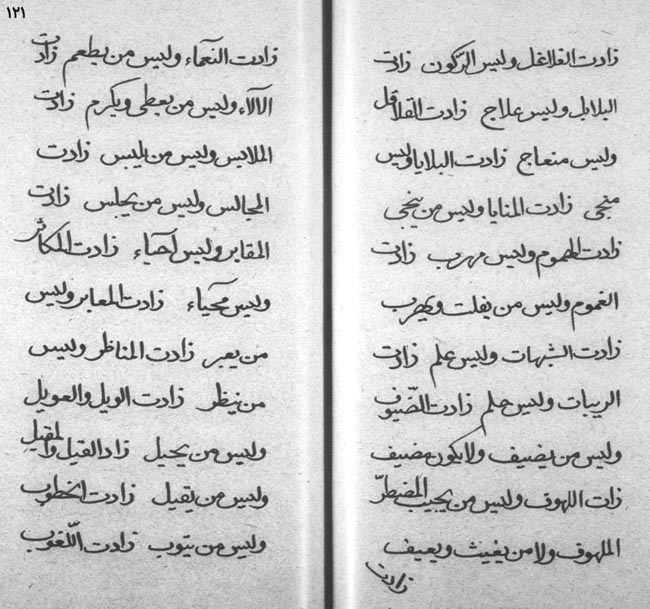 زادت الغلاغل وليس الركون زادت
البلابل وليس علاج زادت القلاقل
وليس منعاج زادت البلايا وليس
منجی زادت المنايا وليس من ينجی
زادت الهموم وليس مهرب زادت
الغموم وليس من يفلت ويهرب
زادت الشبهات وليس علم زادت
الريبات وليس حلم زادت الضيوف
وليس من يضيف ولا يكون مضيف
زات اللهوف وليس من يجيب المضطر
الملهوف ولا من يغيث ويعيف
زادت
١٢١
زادت النعماء وليس من يطعم زادت
الآلاء وليس من يعطی ويكرم زادت
الملابس وليس من يلبس زادت
المجالس وليس من يجلس زادت
المقابر وليس احياء زادت المكاثر
وليس محياء زادت المعابر وليس
من يعبر زادت المناظر وليس
من ينظر زادت الويل والعويل
وليس من يحيل زاد القيل والمقيل
وليس من يقيل زادت الخطوب
وليس من يتوب زادت اللغوب